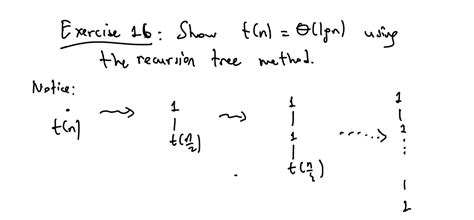 Exercise 16: Show t(n) = Θ(lgn) using
the recursion tree method.
Notice:
t(n) ⇝ 1 | t(n/2) ⇝ 1 | 1 | t(n/2) ......> 1 | 1 ⋮ | 1